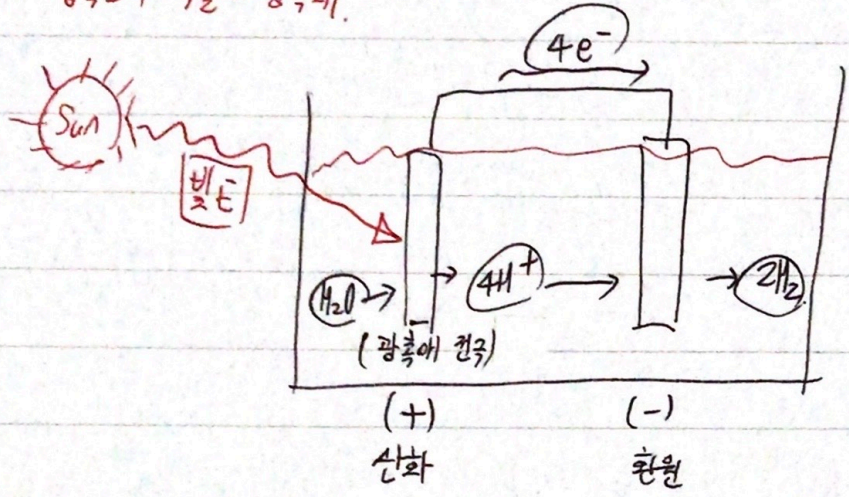 4e⁻
Sun
빛E
H₂O → 4H⁺ → 2H₂
(광촉매 전극)
(+) (-)
산화 환원